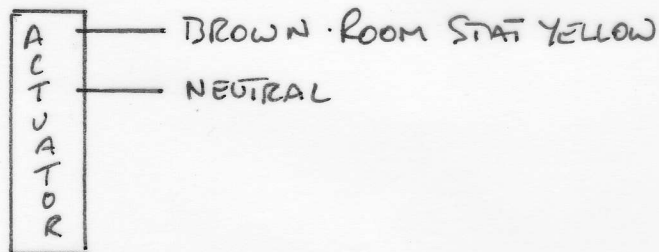 ACTUATOR
BROWN · ROOM STAT YELLOW
NEUTRAL